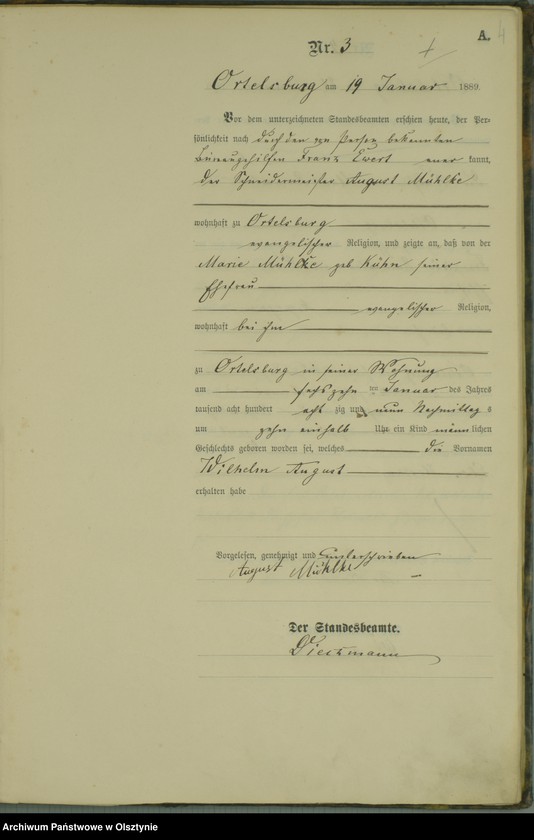 A.
4
Nr. 3
Ortelsburg am 19 Januar 1889.
Vor dem unterzeichneten Standesbeamten erschien heute, der Per-
sönlichkeit nach durch den von Person bekannten
Büreaugehilfen Franz Ewert aner kannt,
der Schneidermeister August Mühlke
wohnhaft zu Ortelsburg
evangelischer Religion, und zeigte an, daß von der
Marie Mühlke geb Kühn seiner
Ehefrau
evangelischer Religion,
wohnhaft bei ihm
zu Ortelsburg in seiner Wohnung
am sechszehn ten Januar des Jahres
tausend acht hundert acht zig und neun Nachmittag s
um zehn einhalb Uhr ein Kind männlichen
Geschlechts geboren worden sei, welches die Vornamen
Wilhelm August
erhalten habe
Vorgelesen, genehmigt und unterschrieben
August Mühlke
Der Standesbeamte.
Archiwum Państwowe w Olsztynie